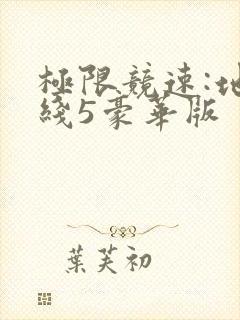 極限競速:地
綫5豪華版
葉芙初